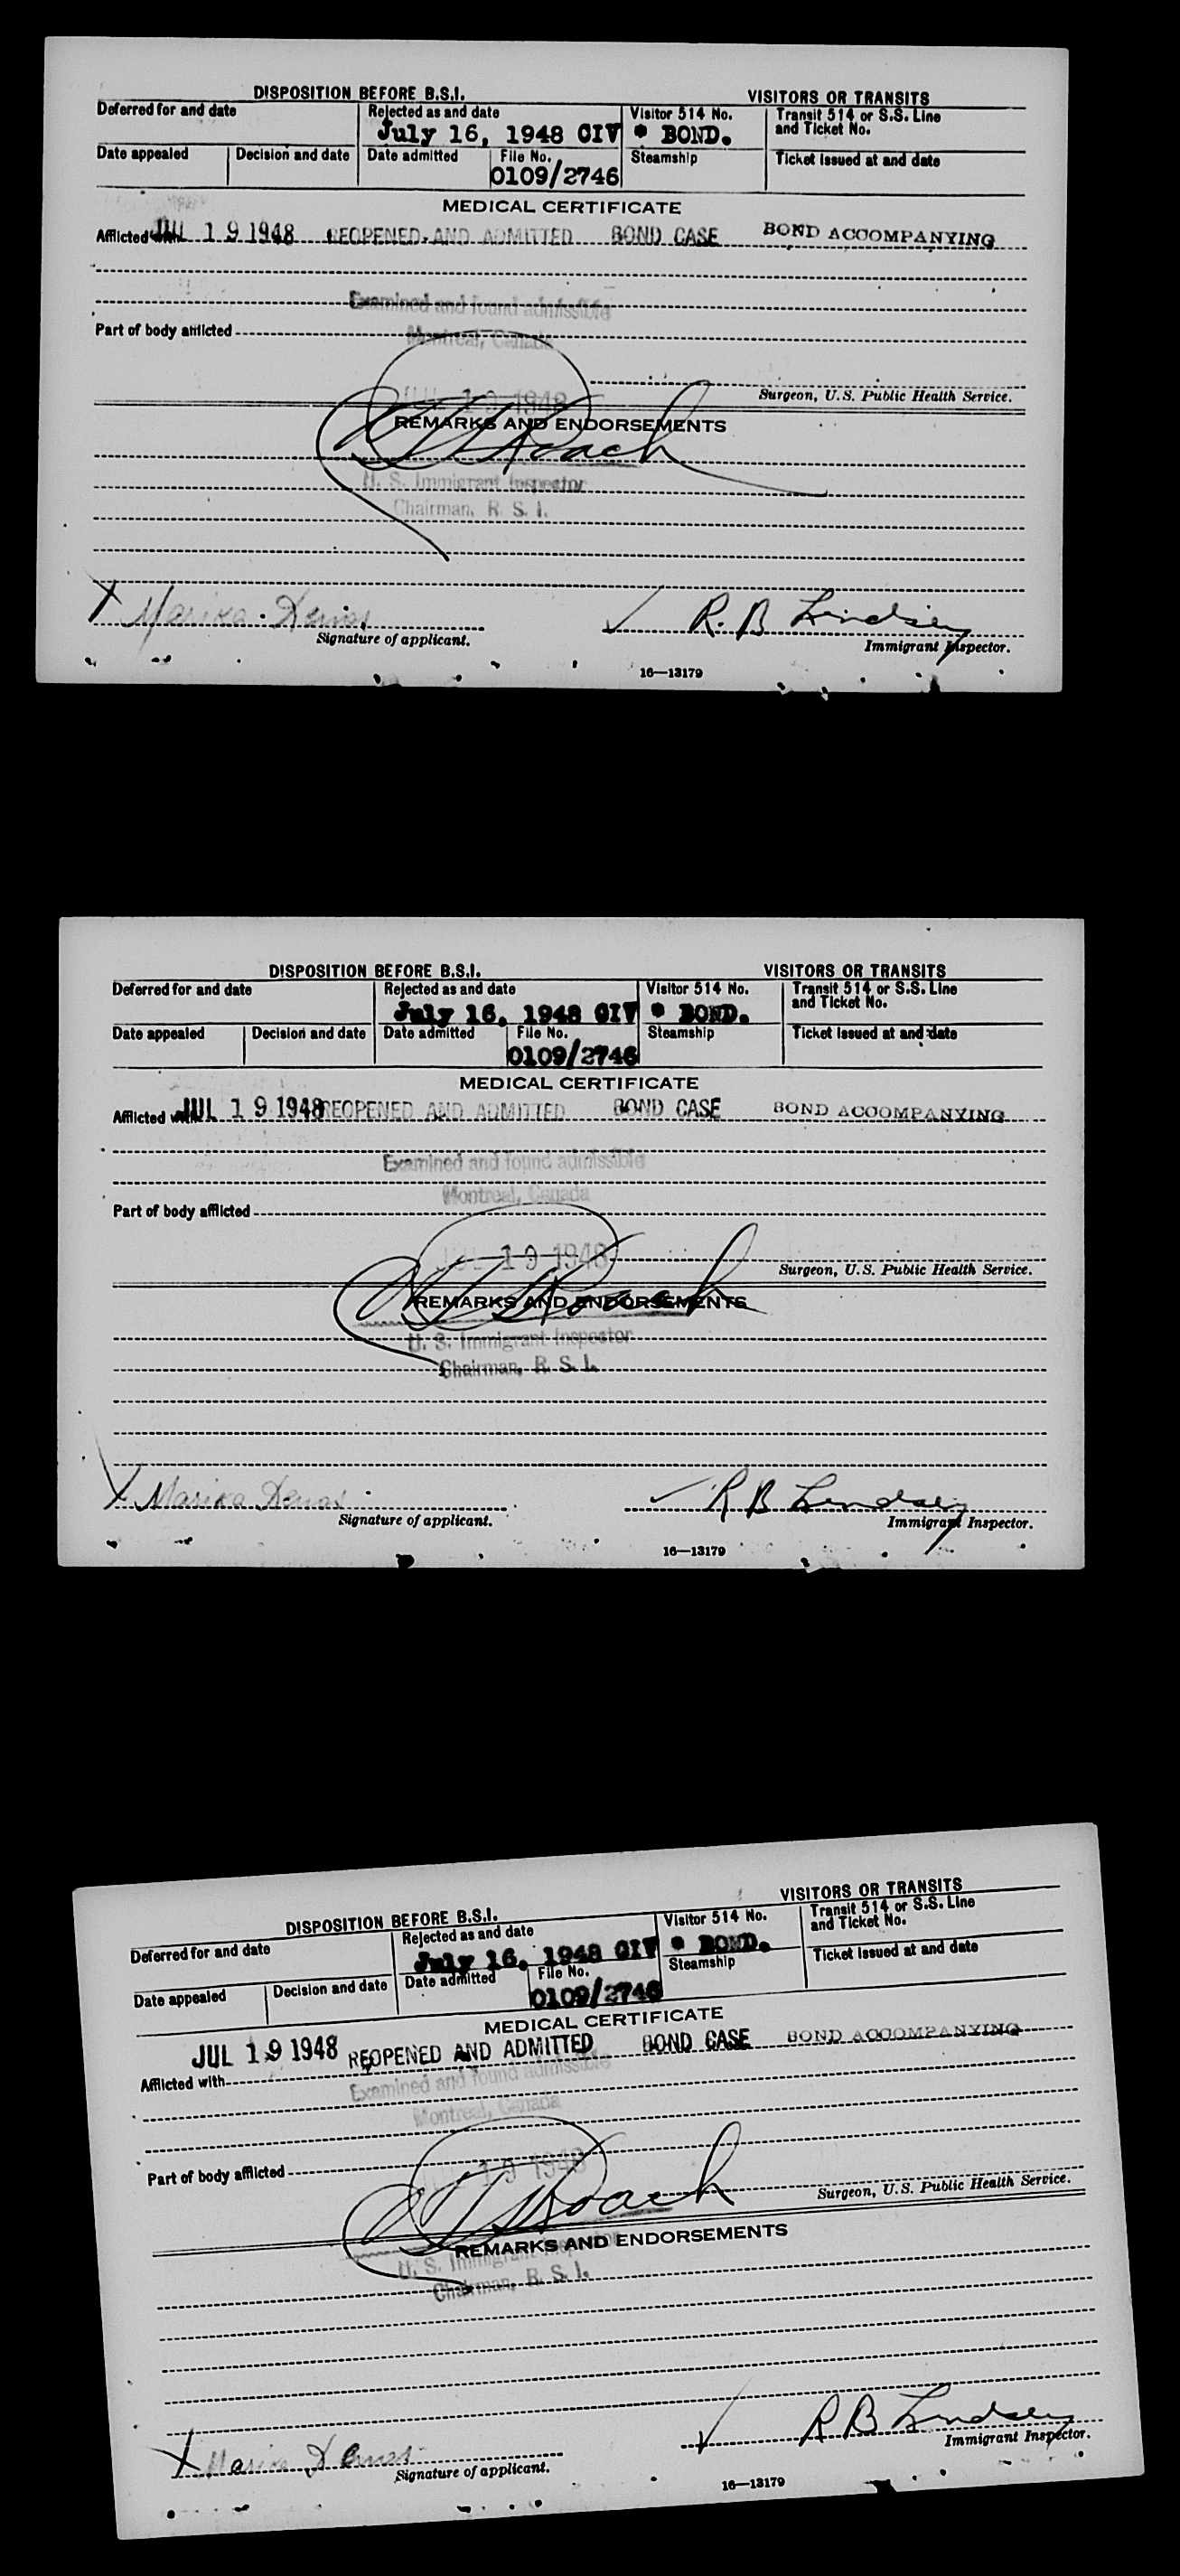 DISPOSITION BEFORE B.S.I.
VISITORS OR TRANSITS
Deferred for and date
Rejected as and date
July 16, 1948 CIV
Visitor 514 No.
* BOND.
Transit 514 or S.S. Line
and Ticket No.
Date appealed
Decision and date
Date admitted
File No.
0109/2746
Steamship
Ticket issued at and date
MEDICAL CERTIFICATE
Afflicted with JUL 19 1948 REOPENED AND ADMITTED BOND CASE BOND ACCOMPANYING
Examined and found admissible
Part of body afflicted
Montreal, Canada
JUL 19 1948
Surgeon, U.S. Public Health Service.
REMARKS AND ENDORSEMENTS
Roach
U. S. Immigrant Inspector
Chairman, B. S. I.
X Marika
R. B. Lindsey
Signature of applicant.
Immigrant Inspector.
16—13179
DISPOSITION BEFORE B.S.I.
VISITORS OR TRANSITS
Deferred for and date
Rejected as and date
July 16, 1948 CIV
Visitor 514 No.
* BOND.
Transit 514 or S.S. Line
and Ticket No.
Date appealed
Decision and date
Date admitted
File No.
0109/2746
Steamship
Ticket issued at and date
MEDICAL CERTIFICATE
Afflicted with JUL 19 1948 REOPENED AND ADMITTED BOND CASE BOND ACCOMPANYING
Examined and found admissible
Montreal, Canada
Part of body afflicted
JUL 19 1948
Surgeon, U.S. Public Health Service.
Roach
REMARKS AND ENDORSEMENTS
U. S. Immigrant Inspector
Chairman, B. S. I.
X Marika
R B Lindsey
Signature of applicant.
Immigrant Inspector.
16—13179
DISPOSITION BEFORE B.S.I.
VISITORS OR TRANSITS
Deferred for and date
Rejected as and date
July 16, 1948 CIV
Visitor 514 No.
* BOND.
Transit 514 or S.S. Line
and Ticket No.
Date appealed
Decision and date
Date admitted
File No.
0109/2746
Steamship
Ticket issued at and date
MEDICAL CERTIFICATE
JUL 19 1948 REOPENED AND ADMITTED BOND CASE BOND ACCOMPANYING
Afflicted with
Examined and found admissible
Montreal, Canada
Part of body afflicted
19 1948
Surgeon, U.S. Public Health Service.
Roach
REMARKS AND ENDORSEMENTS
U. S. Immigrant Inspector
Chairman, B. S. I.
X Marika
R B Lindsey
Signature of applicant.
Immigrant Inspector.
16—13179